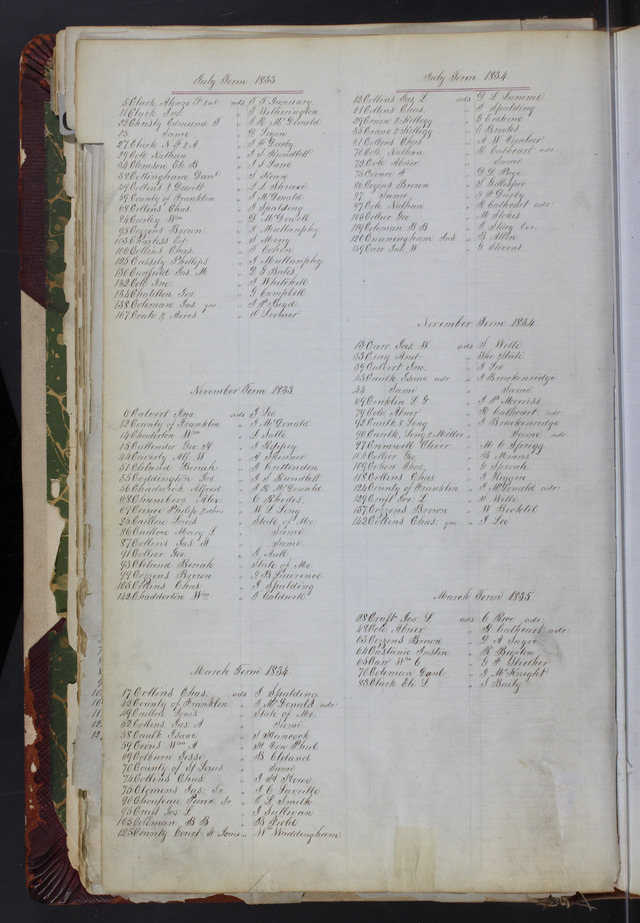 July Term 1833
5 Clark Alonzo P & al ads J S Ingurary
11 Clark Ind " J Wetherington
22 Christy Edmund T " J R McDonald
25 Same " D Ligon
27 Cheek N P & A " J P Darby
29 Cole Nathan " J S Rundlett
34 Clemson Eli B " J S Lane
38 Cottingham Danl " S
49 Collins & Dwill " L L Shreve
59 County of Franklin " I McDonald
68 Collins Chas. " J Spalding
84 Curley Wm " D McDowell
95 Cozzens Brown " J Mullanphy
103 Charless Ed. " S Merry
106 Collins Chas. " I Cohen
125 Cassily Phillips " J Mullanphy
130 Canfield Jas. M " D G Bates
132 Cole Jno. " J Whitehill
134 Chatillon Jos " G Campbell
138 Coleman Jas. gar " J P Boyd
167 Coale & Aeres " A Levoner
November Term 1833
6 Calvert Jno ads J Lee
12 County of Franklin " I McDonald
14 Chaderton Wm " L Salle
21 Callender Geo H " J Keppey
44 Caverly All. W " H Skinner
51 Cleland Beriah " J Crittenden
55 Coddington Jos " J S Rundlett
56 Chadwick Alfred " J R McDonald
68 Chambers Alex " C Rhodes
67 Comee Philip & " W L Long
25 Caillou Louis " State of Mo.
86 Caillou Mary L " Same
87 Collens Jas. A " Same
91 Collier Geo. " J Aull
93 Cleland Beriah " State of Mo
99 Cozzens Brown " J B Lawrence
105 Collins Chas " J Spalding
142 Chadderton Wm " S Caldwell
March Term 1834
17 Collens Chas. ads J Spalding
42 County of Franklin " I McDonald adr.
49 Cailloa Louis " State of Mo
52 Collens Jas. A " Same
58 Caulk Isaac " S Hancock
59 Coons Wm A " H Von Phul
69 Colburn Jesse " B Cleland
70 County of St Louis " Same
74 Collins Chas. " J H Howe
75 Clemens Jas. Jr " J C Laveille
90 Chouteau Pierre Jr " C L Smith
95 Craft Jos. L " J Sullivan
105 Coleman B B " B Field
125 County Court St Louis " Wm Waddingham
July Term 1834
12 Collins Jos. L ads D D Lamme
21 Collens Chas. " J Spalding
29 Crain & Kellogg " C Erskine
55 Crane & Kellogg " C Brooks
61 Collins Chas " A W
70 Cole Nathan " R Cathcart adr.
72 Cole Abner " Same
75 Cornce F " D D Page
86 Cozens Brown " J Gillespie
87 Same " J P Darby
97 Cole Nathan " R Cathcart adr
103 Collier Geo " M Stokes
119 Coleman B B " J Stacy Exr.
120 Cunningham Jas. " B Allen
149 Carr Jas. W " G Stevens
November Term 1834
13 Carr Jas. W ads S Wells
33 Cray And. " The State
39 Calvert Jno. " J Lee
43 Caulk Isaac adr " J Brackenridge
44 Same " Same
69 Conklin L G " J P Morriss
79 Cole Abner " R Cathcart adr
93 Caulk & Long " J Brackenridge
96 Caulk, Long & Miller " Same adr.
97 Cromwell Oliver " M C Sprigg
103 Collier Geo " B Means
109 Cohen Thos. " G Sproule
118 Collins Chas " J Riggin
125 County of Franklin " C McDonald adr.
129 Craft Jos. L " S Wells
137 Cozzens Brown " W Bechtel
142 Collens Chas. gar " J Lee
March Term 1835
28 Craft Jos. L ads C Rice adr.
48 Cole Abner " R Cathcart adr.
63 Cozzens Brown " D A Sayre
64 Castanie Justin " R Bigelon
65 Carr Wm C " G F Strother
70 Coleman Danl " J McKnight
83 Clark Eli L " S Baily